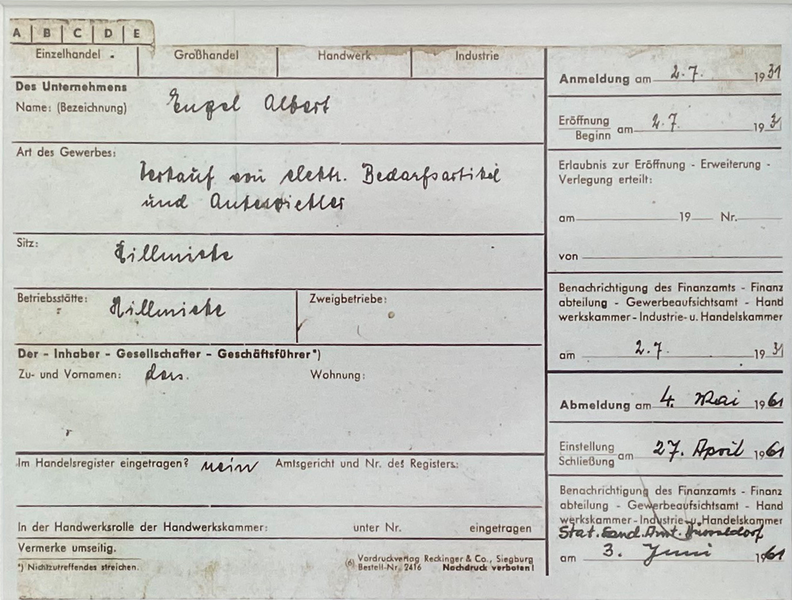 A B C D E
Einzelhandel Großhandel Handwerk Industrie
Des Unternehmens
Name: (Bezeichnung) Engel Albert
Art des Gewerbes:
Verkauf von elektr. Bedarfsartikel
und
Sitz: Hillmicke
Betriebsstätte: Hillmicke Zweigbetriebe:
Der - Inhaber - Gesellschafter - Geschäftsführer*)
Zu- und Vornamen: ders. Wohnung:
Im Handelsregister eingetragen? nein Amtsgericht und Nr. des Registers:
In der Handwerksrolle der Handwerkskammer: unter Nr. eingetragen
Vermerke umseitig.
*) Nichtzutreffendes streichen.
Vordruckverlag Reckinger & Co., Siegburg
Bestell-Nr. 2416 Nachdruck verboten!
Anmeldung am 2.7. 1931
Eröffnung
Beginn am 2.7. 193
Erlaubnis zur Eröffnung - Erweiterung -
Verlegung erteilt:
am 19 Nr.
von
Benachrichtigung des Finanzamts - Finanz
abteilung - Gewerbeaufsichtsamt - Hand
werkskammer - Industrie- u. Handelskammer
am 2.7. 193
Abmeldung am 4. Mai 1961
Einstellung
Schließung am 27. April 1961
Benachrichtigung des Finanzamts - Finanz
abteilung - Gewerbeaufsichtsamt - Hand
werkskammer - Industrie- u. Handelskammer
Stat. Land. Amt. Düsseldorf
am 3. Juni 1961